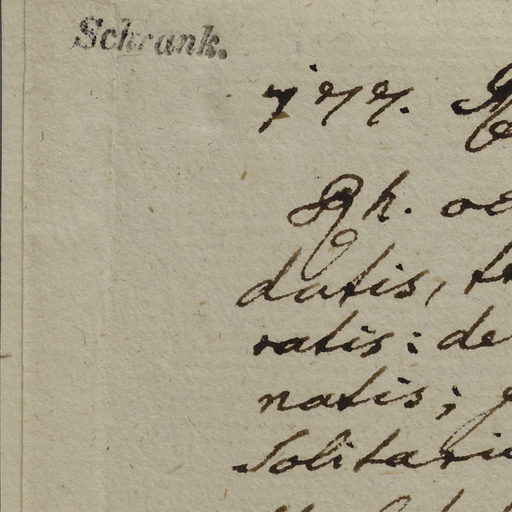 Schrank.
777. R
Rh. oc
datis, te
ratis: de
natis; g
Solitari